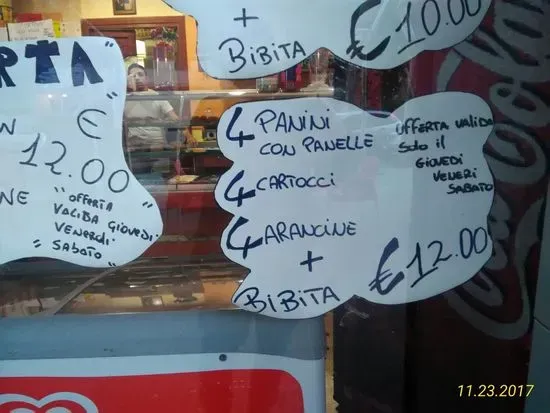 +
BIBITA
€ 10.00
RTA"
N €
12.00
NE
"OFFERTA
VALIDA GIOVEDI
VENERDI
SABATO"
4 PANINI
CON PANELLE
4 CARTOCCI
4 ARANCINE
+
BIBITA
€ 12.00
OFFERTA VALIDA
Solo il
GIOVEDI
VENERI
SABATO
Coca-Cola
11.23.2017